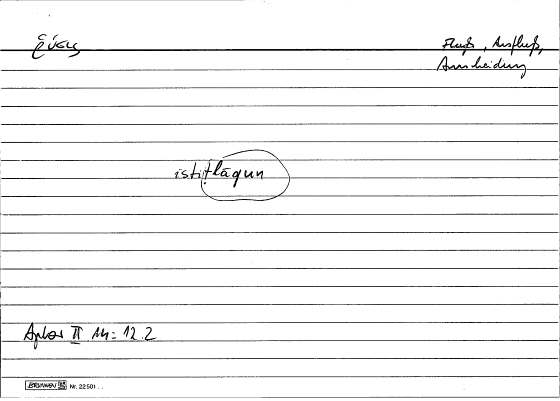 ῥύσις
Fluß, Ausfluß,
Ausscheidung
istiṭlāqun
Aphor II 14 = 12.2
BRUNNEN Nr. 22 501 . .